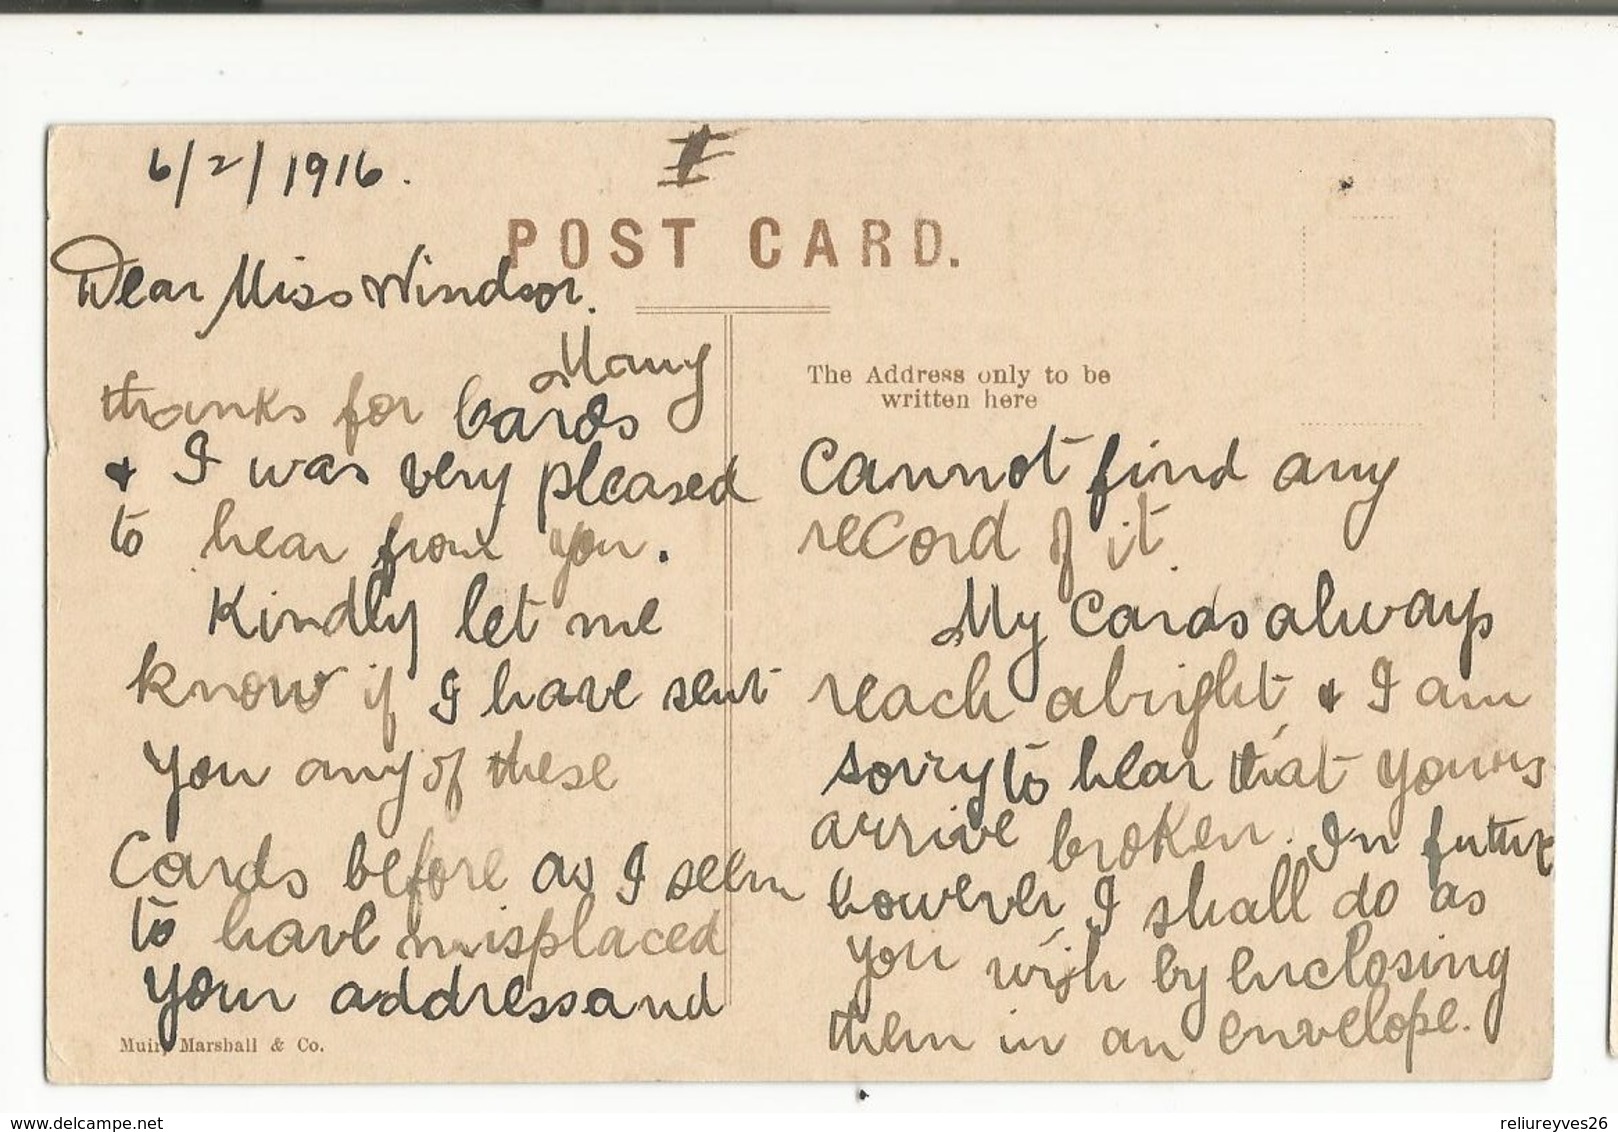 6/2/1916.
POST CARD.
Dear Miss Windsor.
Many
thanks for Cards
& I was very pleased
to hear from you.
Kindly let me
know if I have sent
you any of these
Cards before as I seem
to have misplaced
your address and
Muir, Marshall & Co.
The Address only to be
written here
Cannot find any
record of it.
My Cards always
reach alright & I am
sorry to hear that yours
arrive broken. In future
however I shall do as
you wish by enclosing
them in an envelope.
www.delcampe.net
reliureyves26